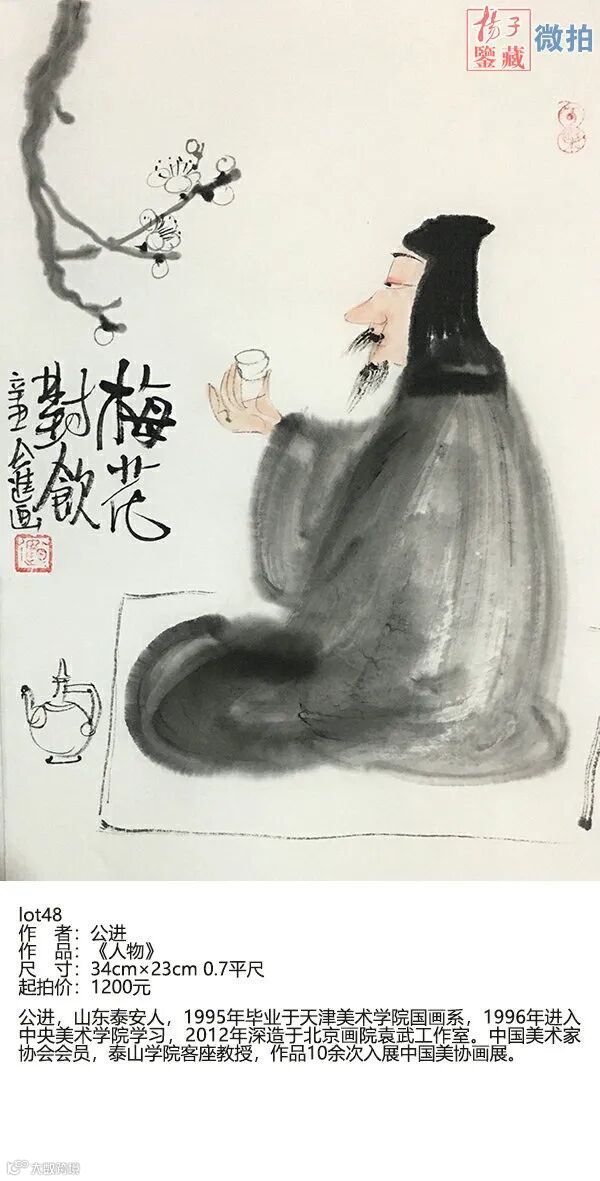 楊子
鑒藏
微拍
梅花
對飲
辛丑公進画
lot48
作 者：公进
作 品：《人物》
尺 寸：34cm×23cm 0.7平尺
起拍价：1200元
公进，山东泰安人，1995年毕业于天津美术学院国画系，1996年进入
中央美术学院学习，2012年深造于北京画院袁武工作室。中国美术家
协会会员，泰山学院客座教授，作品10余次入展中国美协画展。